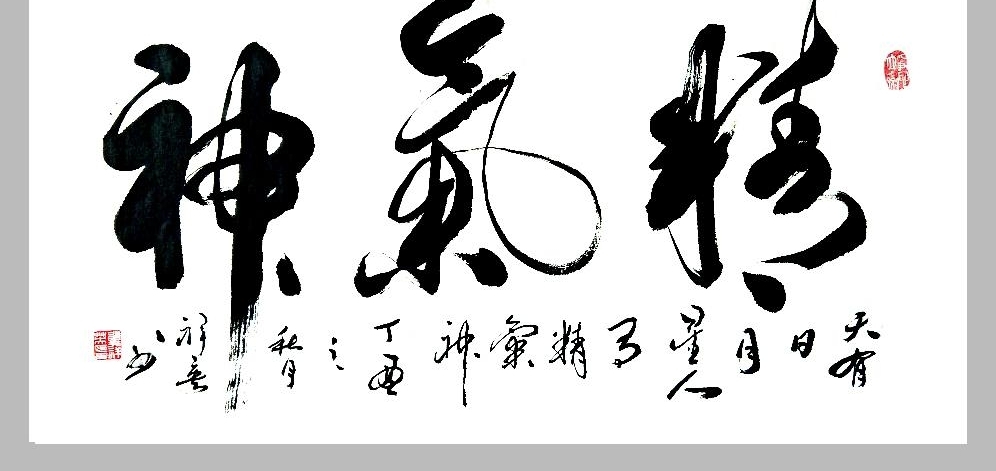 精氣神
天有日月星人有精氣神丁酉之秋月祥书